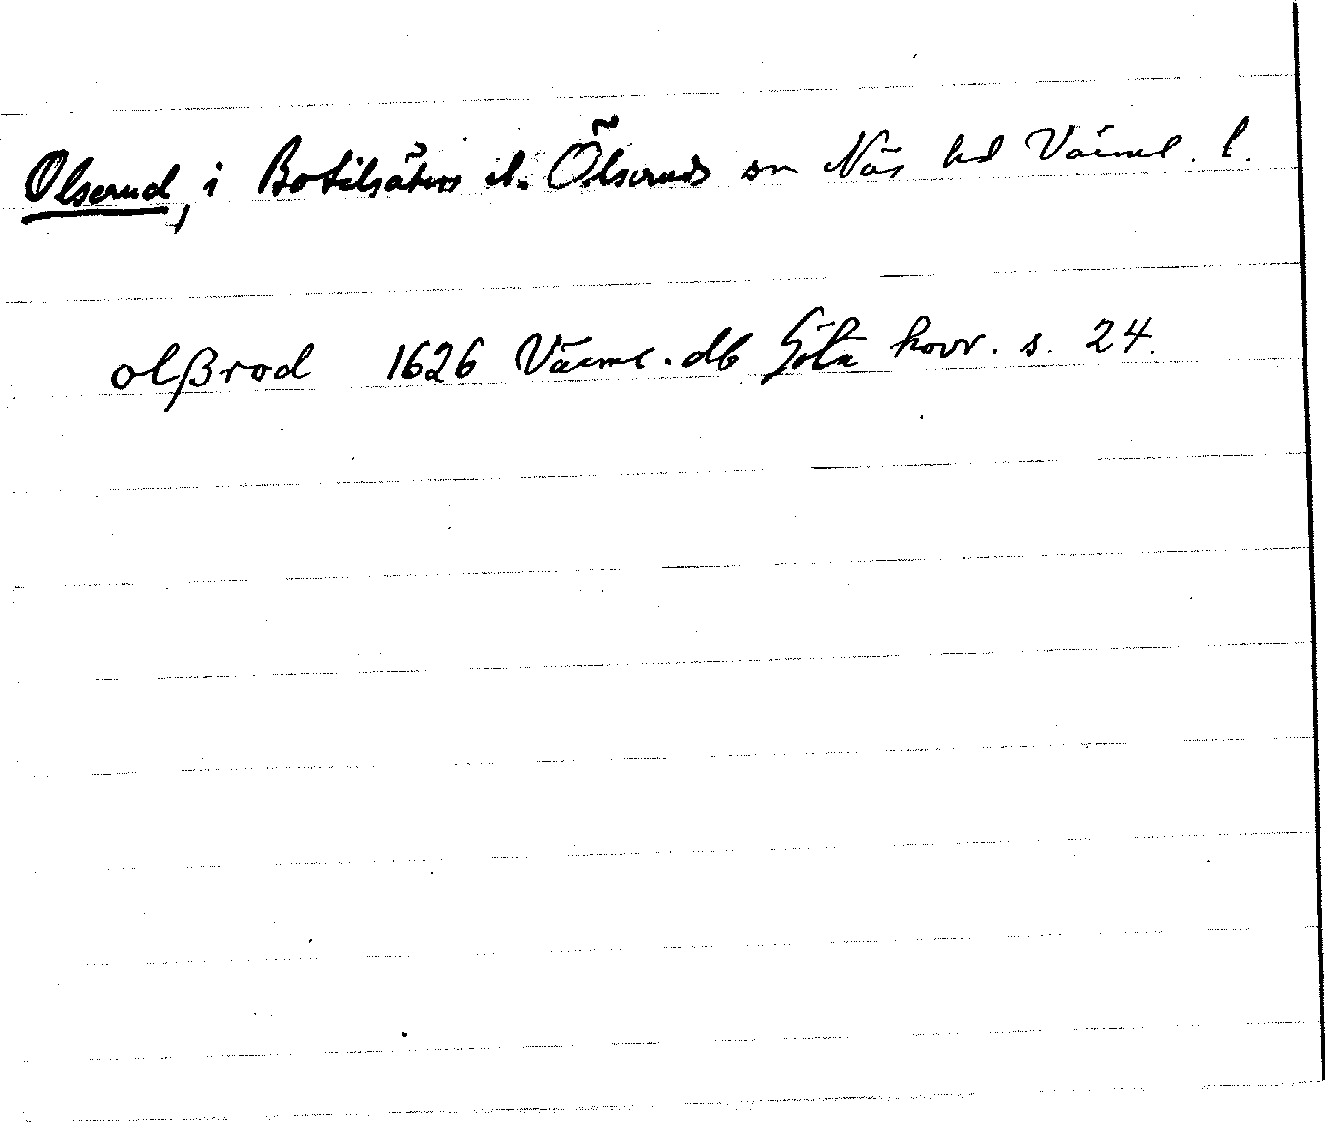 Olserud, i Botilsäters el. Ölseruds sn Näs hd Värml. l.
olßrod 1626 Värml. db Göta hovr. s. 24.